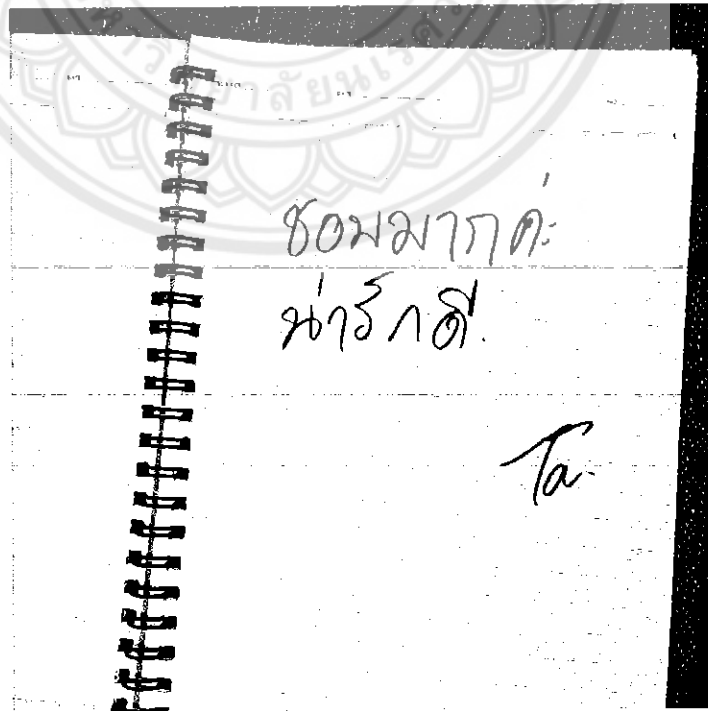 ชอบมากค่ะ
น่ารักดี.